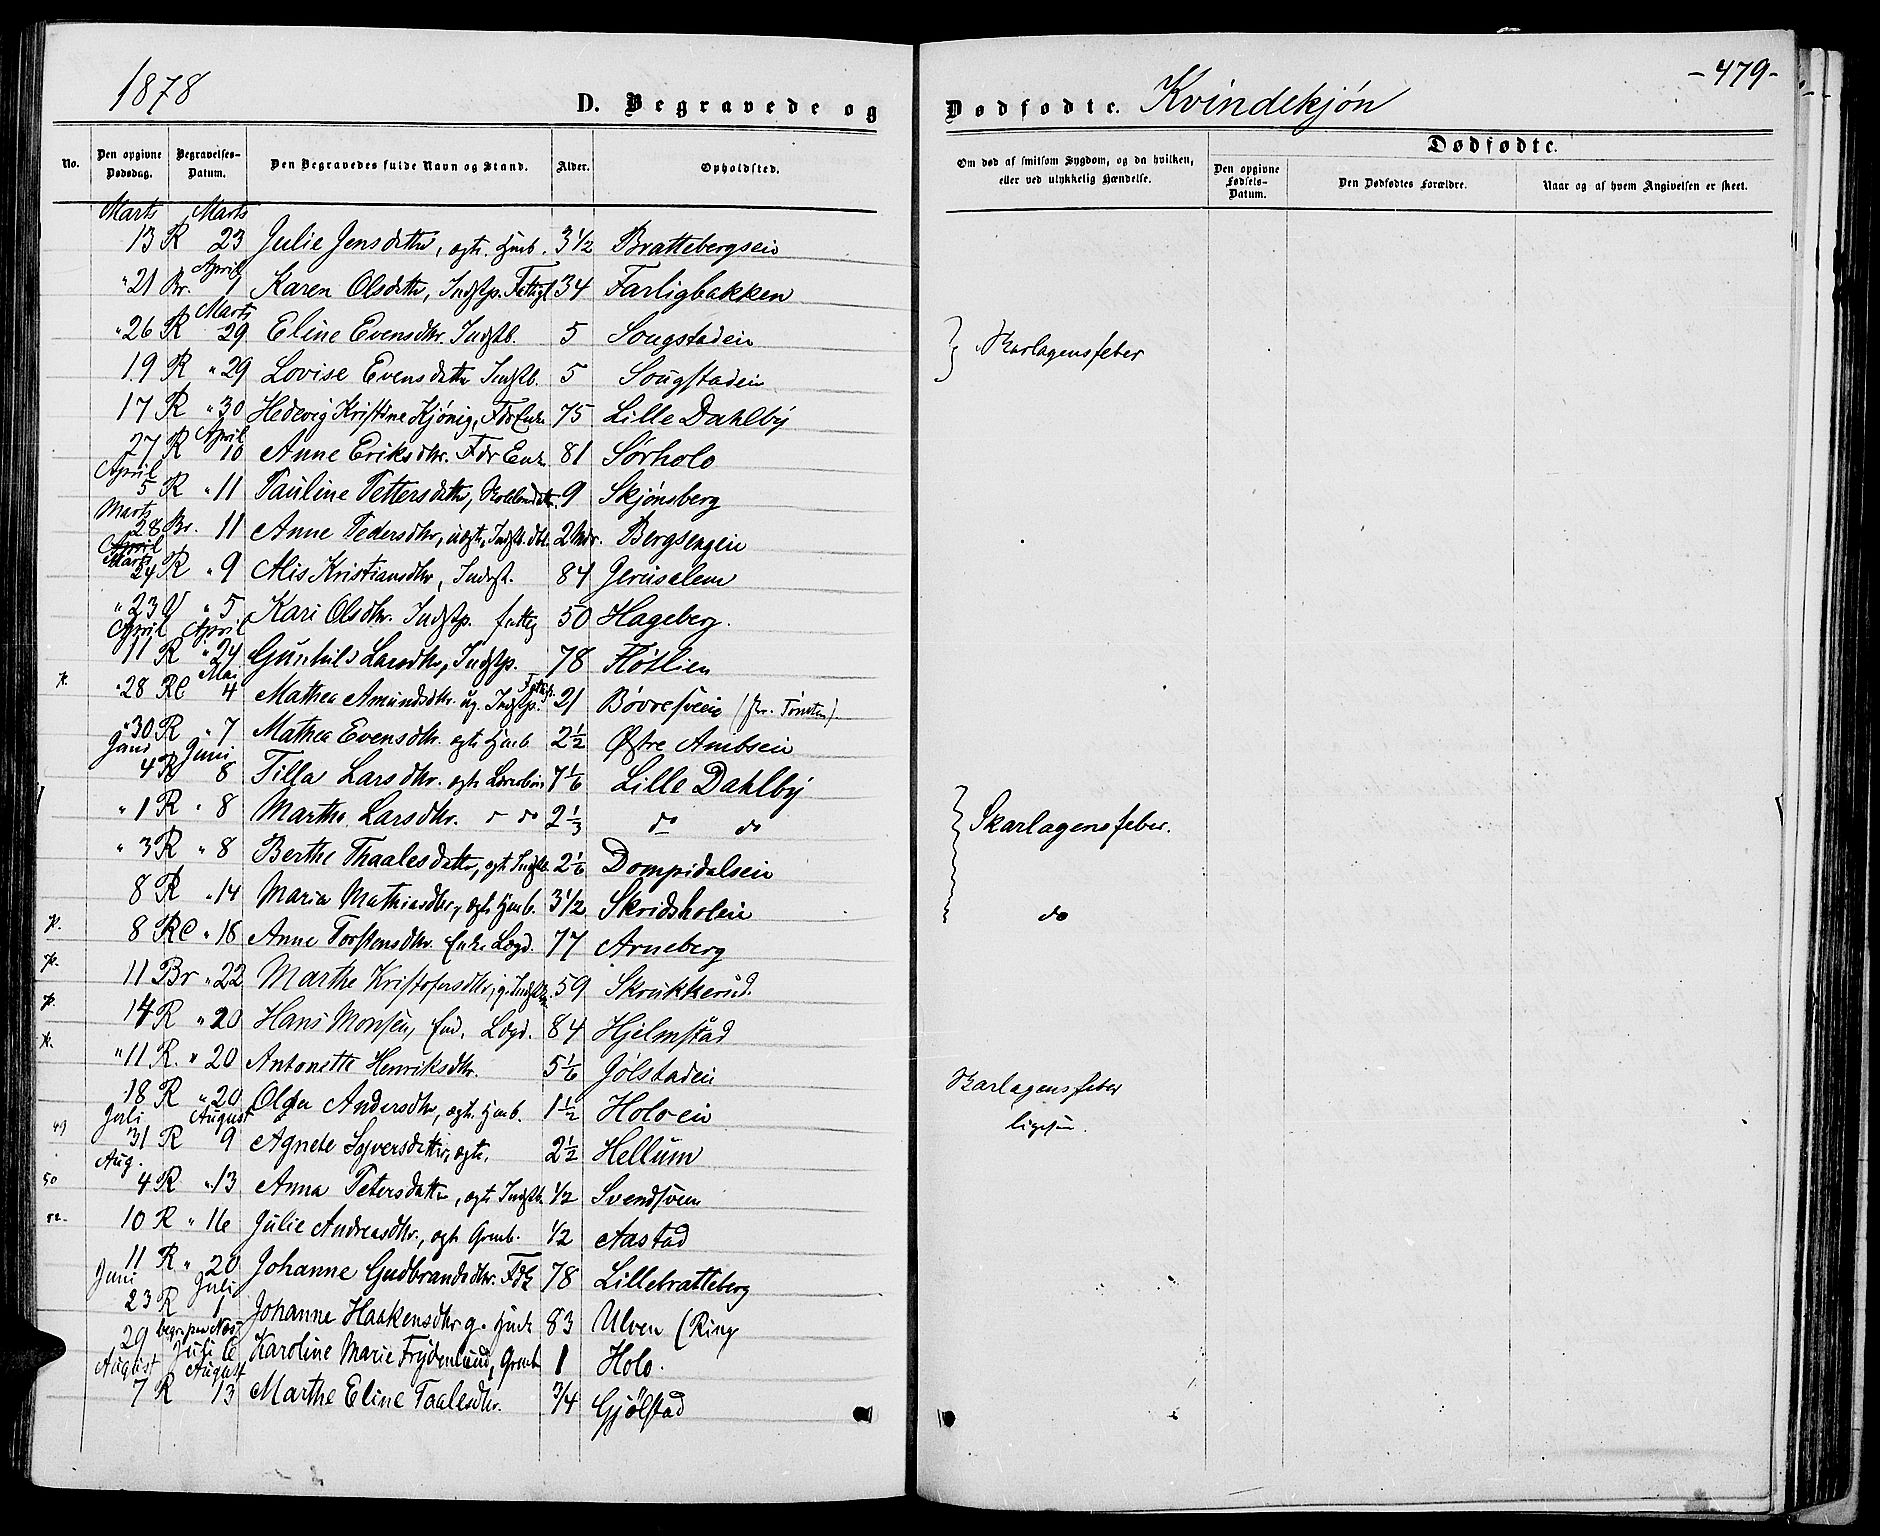 1878
D. Begravede og Dødfødte. Kvindekjøn
-479-
No. Den opgivne Dødsdag. Begravelses-Datum. Den Begravedes fulde Navn og Stand. Alder. Opholdsted. Om død af smitsom Sygdom, og da hvilken, eller ved ulykkelig Hændelse. Dødfødte. Den opgivne Fødsels-Datum. Den Dødfødtes Forældre. Naar og af hvem Angivelsen er skeet.
Marts Marts
13 R 23 Julie Jensdatter, ægte. Hmb. 3 1/2 Brattebergseie
April
" 21 Br. 1 Karen Olsdatter, Indstp. Fattigl 34 Farligbakken
Marts
" 26 R 29 Eline Evensdtr. Indstb. 5 Sougstadeie } Skarlagensfeber
19 R " 29 Lovise Evensdatter Indstb. 5 Sougstadeie
17 R " 30 Hedevig Kristine Kjønig, Fdr Enke 75 Lille Dahlby
April
27 R 10 Anne Eriksdtr. Fdr Enke 81 Sørholo
April
5 R " 11 Pauline Pettersdatter, 9 Skjønsberg
Marts
28 Br. 11 Anne Pedersdtr, uægte, Indstb. dtr. 2 Mdr. Bergsengeie
April
Marts
24 R " 9 Alis Kristiansdtr, Inderst. 84 Jerusalem
" 23 V " 5 Kari Olsdtr. Indstp. fattig 50 Hageberg.
April April
11 R " 24 Gunhild Larsdtr, Indstp. 78 Fløtlien
Mai
p. " 28 RC 4 Mathea Amundsdtr. ug. Indstp. Fattigl. 21 Børresveie (
" 30 R " 7 Mathea Evensdtr. ægte Hmb. 2 1/2 Østre Ambseie
Juni Juni
4 R 8 Tilla Larsdtr. ægte 7 1/6 Lille Dahlby
" 1 R " 8 Marthe Larsdtr. - do 2 1/3 do do } Skarlagensfeber.
" 3 R " 8 Berthe Thaalesdatter, ægte Indstb. 2 1/6 Dompidalseie
8 R " 14 Maria Mathiasdtr, ægte Hmb. 3 1/2 Skridsholeie do
p. 8 RC " 18 Anne Torstensdtr. Enke Lægd. 77 Arneberg
p. 11 Br " 22 Marthe Kristofersdtr, g. 59 Skrukkerud.
p. 14 R " 20 Hans Monsen, Lægd. 84 Hjelmstad
p. " 11 R. " 20 Antonette Henriksdtr. 5 1/6 Jølstadeie
18 R " 20 Olga Andersdtr, ægte. Hmb. 1 1/2 Holo-eie Skarlagensfeber
Juli August
49 31 R 9 Agnete Syversdatter, ægte. 2 1/2 Hellum ligesaa.
Aug.
50 4 R " 13 Anna Petersdatter, ægte Indstb. 1/2 Svendsveen
52. 10 R " 16 Julie Andreasdtr., ægte Grmb. 1/2 Aastad
11 R " 20 Johanne Gudbrandsdtr. Fdk 78 Lillebratteberg
Juni Juli
23 R 1 Johanne Haakensdtr g. 83 Ulven (Ring
begr. paa Næs
29 Juli 6 Karoline Marie Frydenlund, Grmb. 1 Holo.
August August
7 R 13 Marthe Eline Taalesdtr. 3/4 Gjølstad